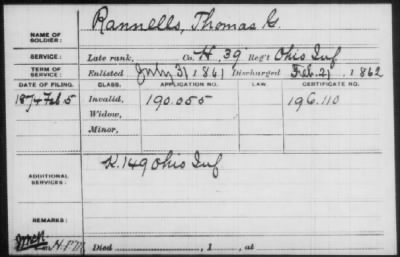 NAME OF SOLDIER: Rannells, Thomas G.
SERVICE: Late rank, Co. H, 39 Reg't Ohio Inf
TERM OF SERVICE: Enlisted July 31, 1861 Discharged Feb. 21, 1862
DATE OF FILING. CLASS. APPLICATION NO. LAW. CERTIFICATE NO.
1874 Feb 5 Invalid, 190.055 196.110
Widow,
Minor,
ADDITIONAL SERVICES: K. 149 Ohio Inf
REMARKS:
Died , 1 , at